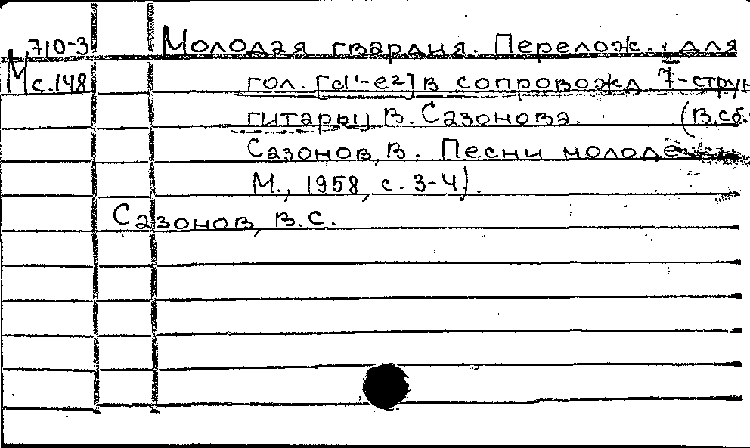 710-3 Молодая гвардия. Перелож. для
М с.148 гол. [d'-e²] в сопровожд. 7-струн
гитары В. Сазонова. (В сб.:
Сазонов, В. Песни молодёжи.
М., 1958, с. 3-4).
Сазонов, В.С.